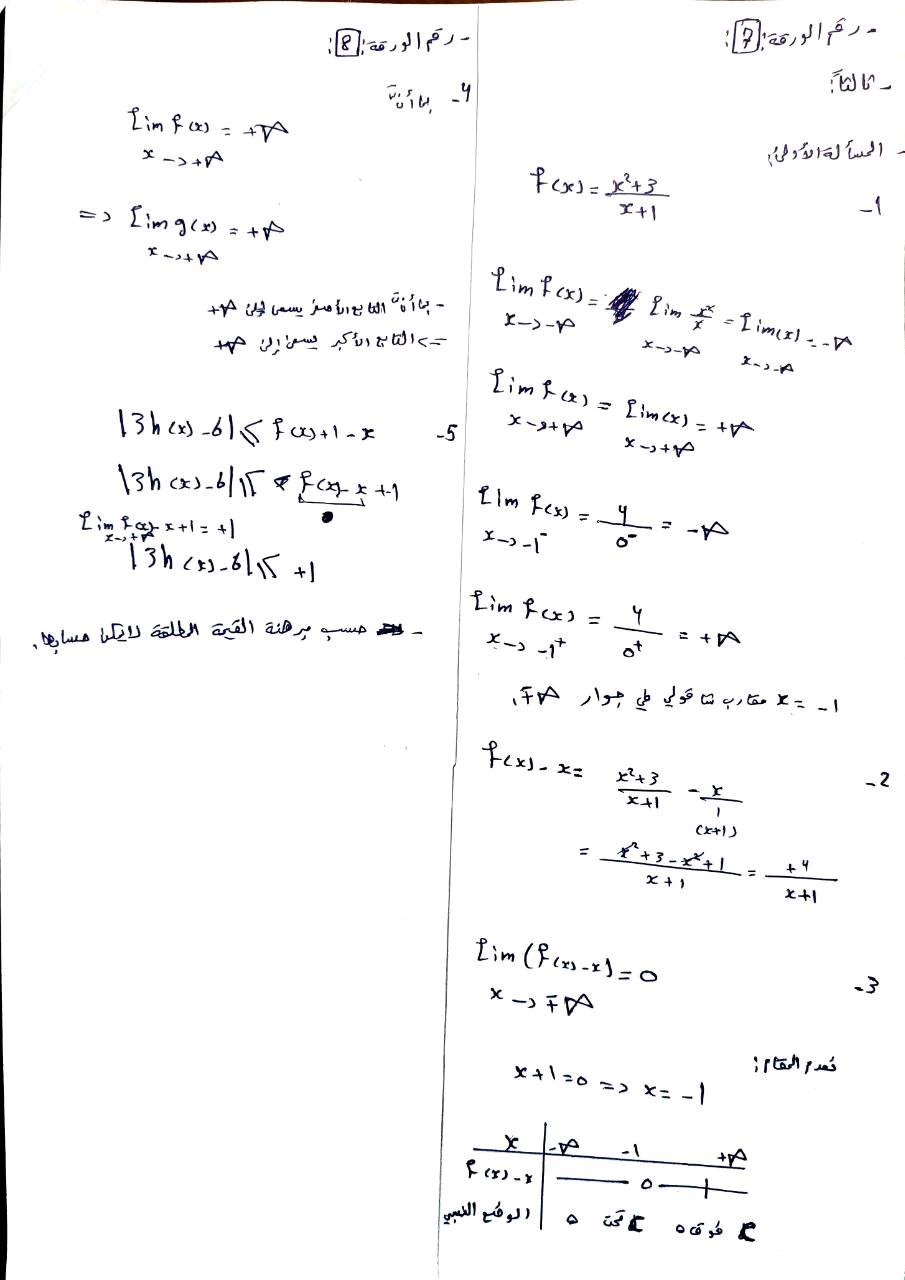 - رقم الورقة: 7:
- ثالثاً:
- المسألة الأولى:
1- f(x) = x²+3 / x+1
Lim f(x) = Lim x²/x = Lim(x) = -∞
x→-∞ x→-∞ x→-∞
Lim f(x) = Lim(x) = +∞
x→+∞ x→+∞
Lim f(x) = 4 / 0⁻ = -∞
x→-1⁻
Lim f(x) = 4 / 0⁺ = +∞
x→-1⁺
x = -1 مقارب شاقولي في جوار ∓∞.
2- f(x) - x = x²+3 / x+1 - x / 1
(x+1)
= x²+3-x²+1 / x+1 = +4 / x+1
3- Lim (f(x)-x) = 0
x→∓∞
نعدم المقام:
x+1=0 => x=-1
x -∞ -1 +∞
f(x)-x - 0 +
الوضع النسبي C تحت Δ C فوق Δ
- رقم الورقة: 8:
4- بما أنّ
Lim f(x) = +∞
x→+∞
=> Lim g(x) = +∞
x→+∞
- بما أنّ التابع الأصغر يسعى إلى +∞
=> التابع الأكبر يسعى إلى +∞
5- |3h(x)-6| ≤ f(x)+1-x
|3h(x)-6| ≤ f(x)-x+1
Lim f(x)-x+1=+1
x→+∞
|3h(x)-6| ≤ +1
- حسب مبرهنة القيمة المطلقة لا يمكن حسابها.